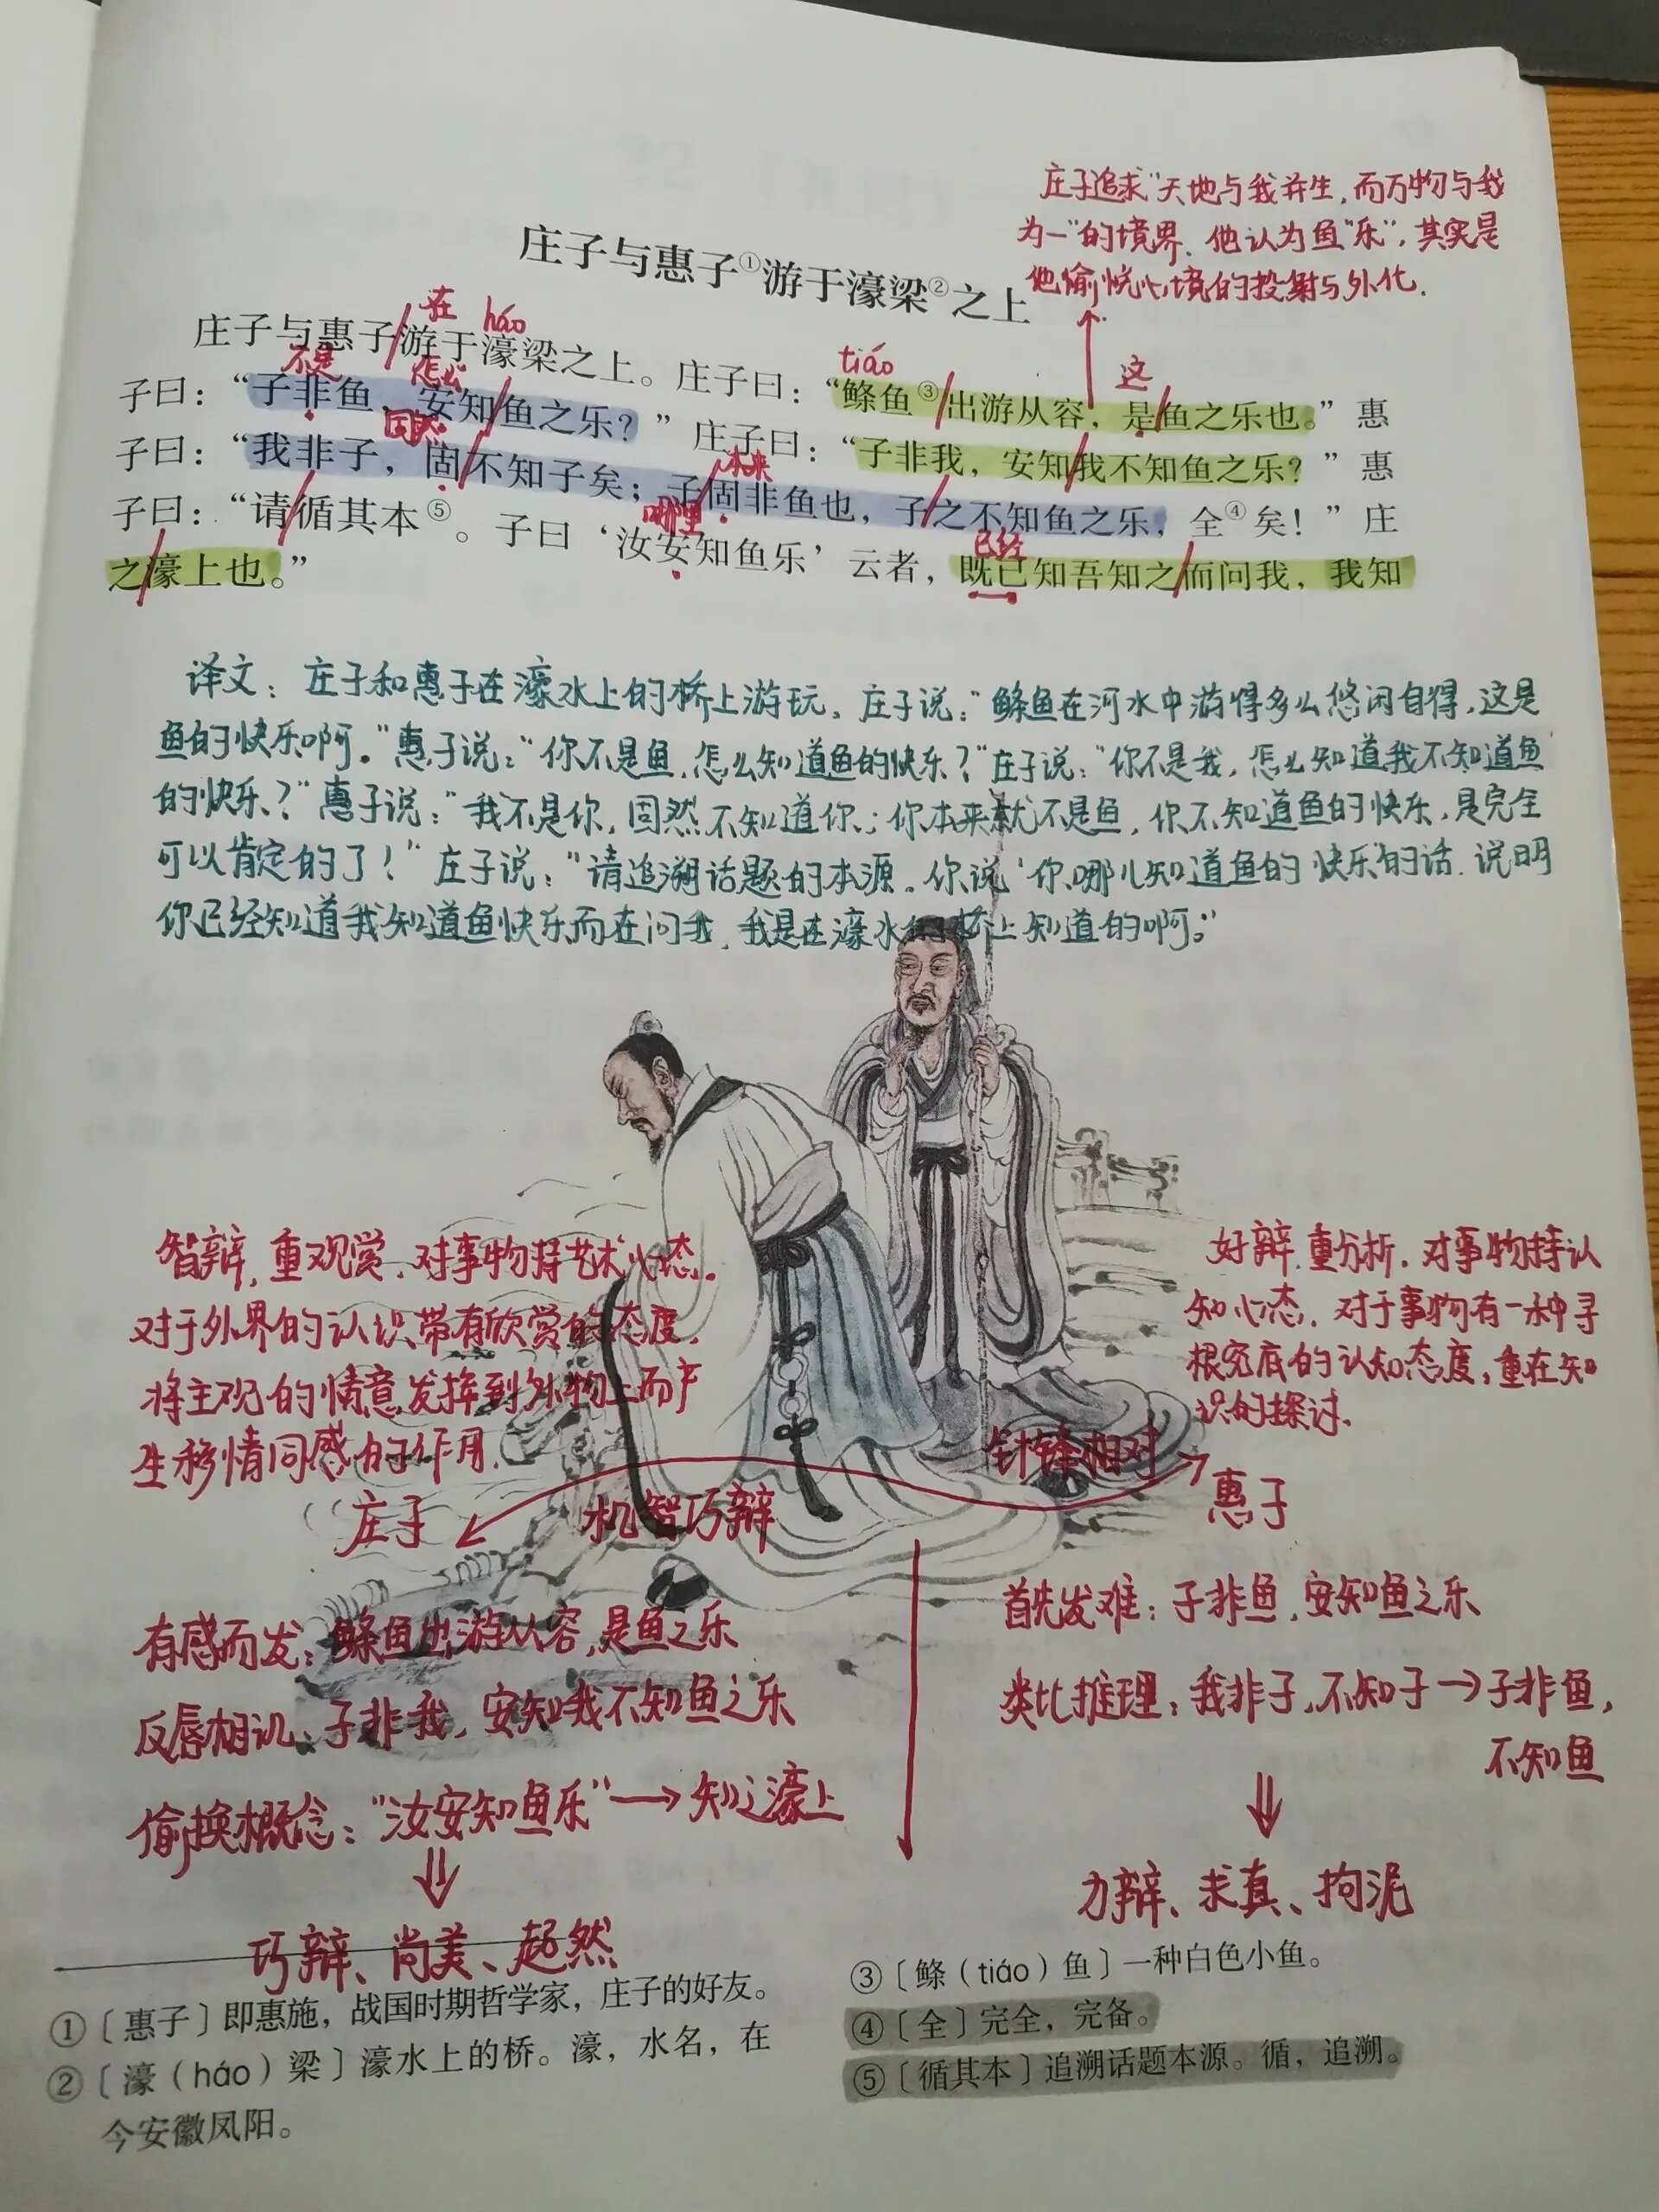 庄子追求“天地与我并生，而万物与我
为一”的境界，他认为鱼“乐”，其实是
他愉悦心境的投射与外化．
庄子与惠子①游于濠梁②之上
在 háo tiáo 这
庄子与惠子游于濠梁之上。庄子曰：“鲦鱼③出游从容，是鱼之乐也。”惠
不是 怎么
子曰：“子非鱼，安知鱼之乐？”庄子曰：“子非我，安知我不知鱼之乐？”惠
固然 本来
子曰：“我非子，固不知子矣；子固非鱼也，子之不知鱼之乐，全④矣！”庄
哪里 已经
子曰：“请循其本⑤。子曰‘汝安知鱼乐’云者，既已知吾知之而问我，我知
之濠上也。”
译文：庄子和惠子在濠水上的桥上游玩，庄子说：“鲦鱼在河水中游得多么悠闲自得，这是
鱼的快乐啊。”惠子说：“你不是鱼，怎么知道鱼的快乐？”庄子说：“你不是我，怎么知道我不知道鱼
的快乐？”惠子说：“我不是你，固然不知道你；你本来就不是鱼，你不知道鱼的快乐，是完全
可以肯定的了！”庄子说：“请追溯话题的本源。你说‘你哪儿知道鱼的快乐’的话，说明
你已经知道我知道鱼快乐而在问我，我是在濠水的桥上知道的啊。”
智辩，重观赏，对事物持艺术心态。
对于外界的认识带有欣赏的态度，
将主观的情意发挥到外物上而产
生移情同感的作用．
好辩，重分析．对事物持认
知心态，对于事物有一种寻
根究底的认知态度，重在知
识的探讨．
庄子 机智巧辩 针锋相对 惠子
有感而发：鲦鱼出游从容，是鱼之乐
反唇相讥：子非我，安知我不知鱼之乐
偷换概念：“汝安知鱼乐”→知之濠上
⇓
巧辩、尚美、超然
首先发难：子非鱼，安知鱼之乐
类比推理：我非子，不知子→子非鱼，
不知鱼
⇓
力辩、求真、拘泥
①〔惠子〕即惠施，战国时期哲学家，庄子的好友。
②〔濠（háo）梁〕濠水上的桥。濠，水名，在
今安徽凤阳。
③〔鲦（tiáo）鱼〕一种白色小鱼。
④〔全〕完全，完备。
⑤〔循其本〕追溯话题本源。循，追溯。